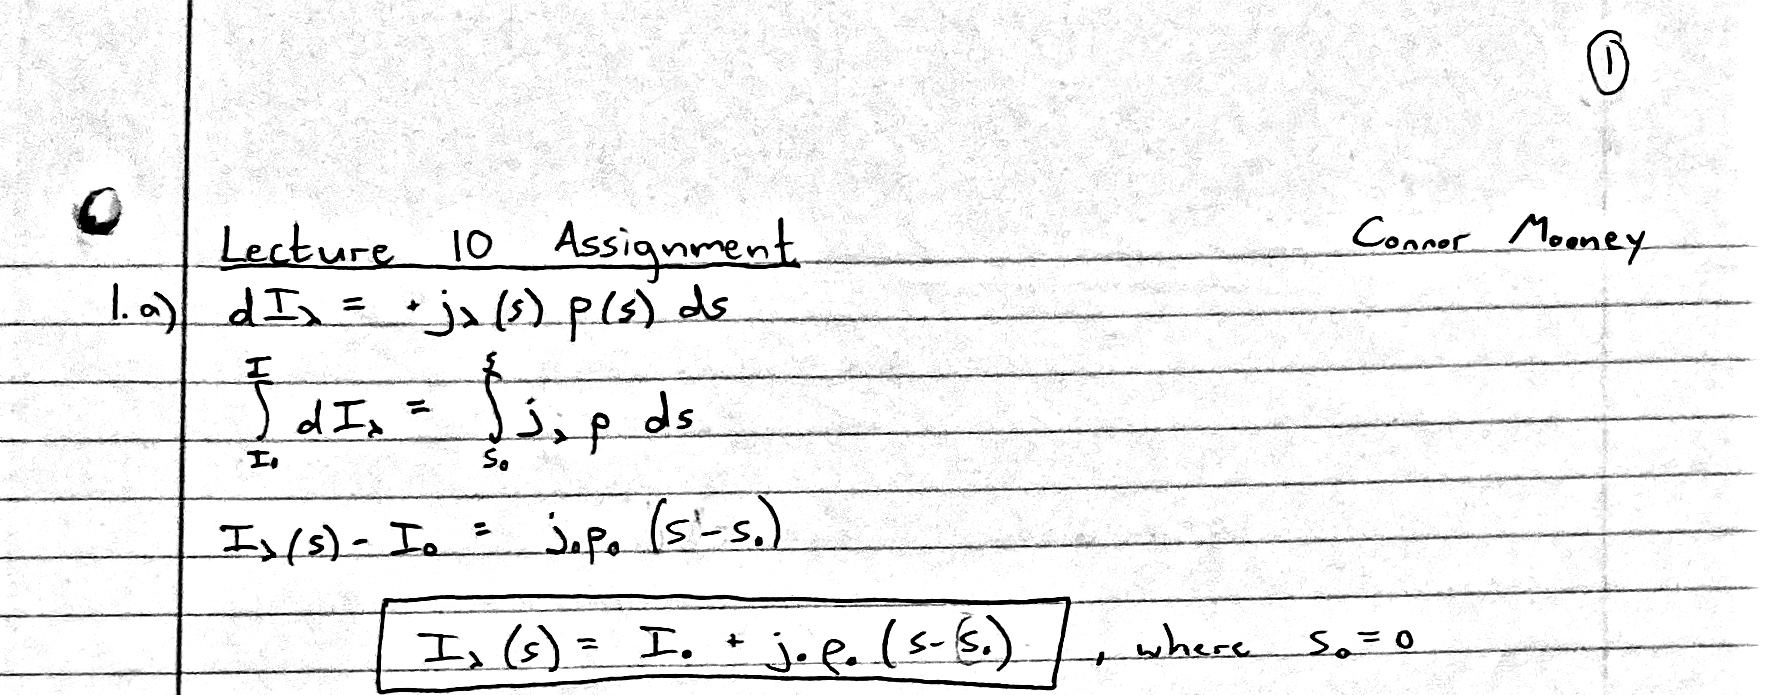 ①
Lecture 10 Assignment Connor Mooney
1. a) dI_λ = + j_λ(s) ρ(s) ds
∫_{I₀}^{I} dI_λ = ∫_{s₀}^{s} j_λ ρ ds
I_λ(s) - I₀ = j₀ρ₀ (s' - s₀)
I_λ(s) = I₀ + j₀ρ₀ (s - s₀) , where s₀ = 0